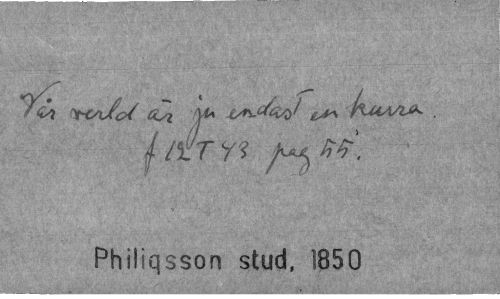 Vår verld är ju endast en kurra.
f 12 T 43 pag 55.
Philiqsson stud, 1850